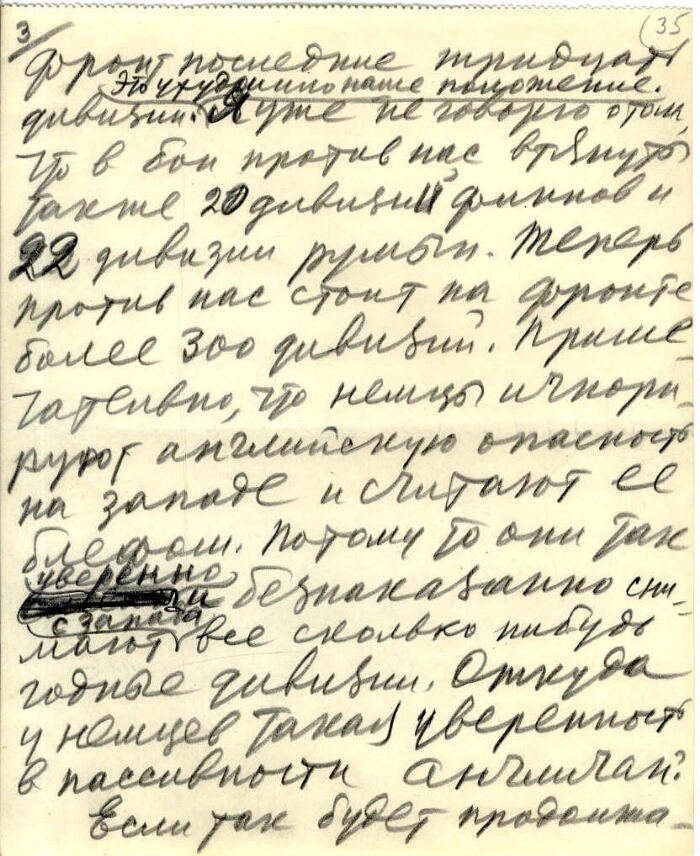 3
35
фронт последние тридцать
Это ухудшило наше положение.
дивизии. Я уже не говорю о том,
что в бои против нас втянуты
также 20 дивизий финнов и
22 дивизии румын. Теперь
против нас стоит на фронте
более 300 дивизий. Приме-
чательно, что немцы игнори-
руют английскую опасность
на западе и считают ее
блефом. Потому то они так
уверенно
и безнаказанно сни-
с запада
мают все сколько нибудь
годные дивизии. Откуда
у немцев такая уверенность
в пассивности англичан?
Если так будет продолжа-